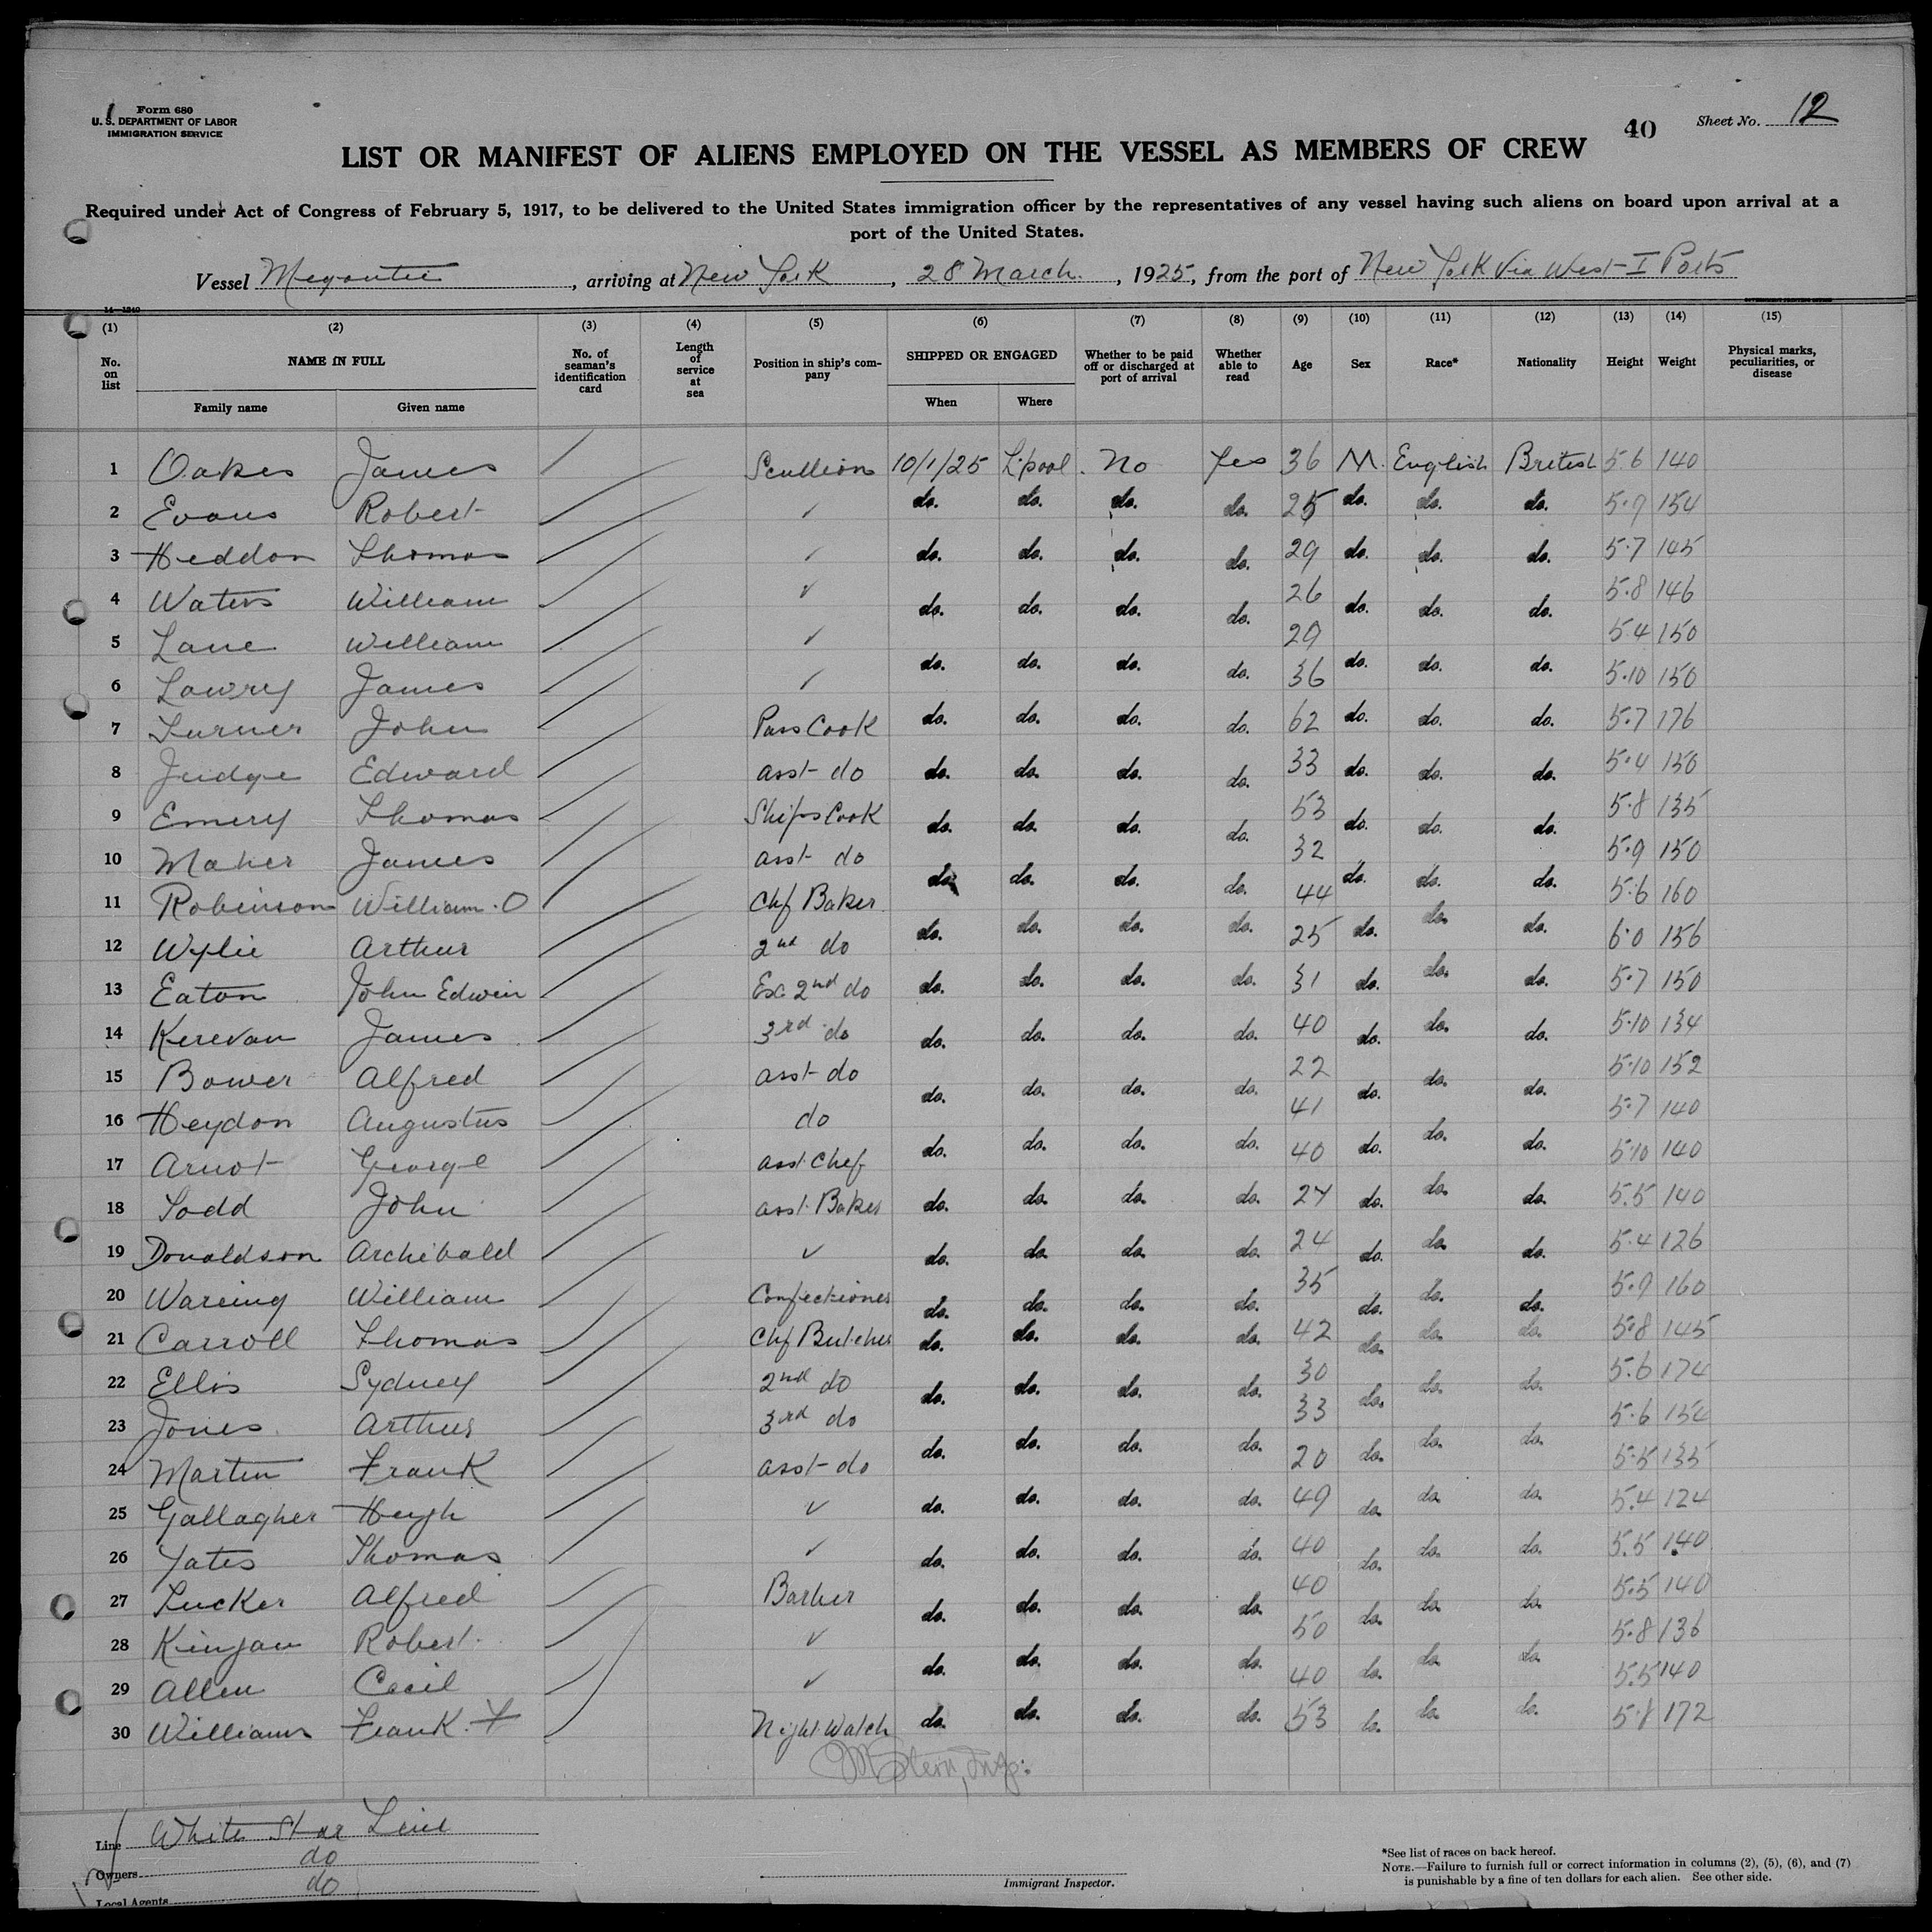 Form 680
U. S. DEPARTMENT OF LABOR
IMMIGRATION SERVICE
40
Sheet No. 12
LIST OR MANIFEST OF ALIENS EMPLOYED ON THE VESSEL AS MEMBERS OF CREW
Required under Act of Congress of February 5, 1917, to be delivered to the United States immigration officer by the representatives of any vessel having such aliens on board upon arrival at a
port of the United States.
Vessel Megantic, arriving at New York, 28 March, 1925, from the port of New York Via West I Ports
14—1240
(1) (2) (3) (4) (5) (6) (7) (8) (9) (10) (11) (12) (13) (14) (15)
No. on list NAME IN FULL No. of seaman's identification card Length of service at sea Position in ship's company SHIPPED OR ENGAGED Whether to be paid off or discharged at port of arrival Whether able to read Age Sex Race* Nationality Height Weight Physical marks, peculiarities, or disease
Family name Given name When Where
1 Oakes James Scullion 10/1/25 L'pool. No Yes 36 M. English British 5.6 140
2 Evans Robert ✓ do. do. do. do. 25 do. do. do. 5.9 154
3 Heddon Thomas ✓ do. do. do. do. 29 do. do. do. 5.7 145
4 Waters William ✓ do. do. do. do. 26 do. do. do. 5.8 146
5 Lane William ✓ 29 5.4 150
6 Lowry James ✓ do. do. do. do. 36 do. do. do. 5.10 150
7 Turner John Pass Cook do. do. do. do. 62 do. do. do. 5.7 176
8 Judge Edward asst do do. do. do. do. 33 do. do. do. 5.4 150
9 Emery Thomas Ships Cook do. do. do. do. 53 do. do. do. 5.8 135
10 Maher James asst do do. do. do. do. 32 do. do. do. 5.9 150
11 Robinson William. O Chf Baker 44 5.6 160
12 Wylie Arthur 2nd do do. do. do. do. 25 do. do. do. 6.0 156
13 Eaton John Edwin Ex. 2nd do do. do. do. do. 31 do. do. do. 5.7 150
14 Kerevan James 3rd do do. do. do. do. 40 do. do. do. 5.10 134
15 Bower Alfred asst do do. do. do. do. 22 do. do. do. 5.10 152
16 Heydon Augustus do 41 5.7 140
17 Arnot George asst Chef do. do. do. do. 40 do. do. do. 5.10 140
18 Todd John asst. Baker do. do. do. do. 27 do. do. do. 5.5 140
19 Donaldson Archibald ✓ do. do. do. do. 24 do. do. do. 5.4 126
20 Wareing William Confectioner do. do. do. do. 35 do. do. do. 5.9 160
21 Carroll Thomas Chf Butcher do. do. do. do. 42 do. do. do. 5.8 145
22 Ellis Sydney 2nd do do. do. do. do. 30 do. do. do. 5.6 174
23 Jones Arthur 3rd do 33 5.6 154
24 Martin Frank asst do do. do. do. do. 20 do. do. do. 5.5 135
25 Gallagher Hugh ✓ do. do. do. do. 49 do. do. do. 5.4 124
26 Yates Thomas ✓ do. do. do. do. 40 do. do. do. 5.5 140
27 Tucker Alfred Barber do. do. do. do. 40 do. do. do. 5.5 140
28 Kinjan Robert ✓ 50 5.8 136
29 Allen Cecil ✓ do. do. do. do. 40 do. do. do. 5.5 140
30 Williams Frank. F Night Watch do. do. do. do. 53 do. do. do. 5.8 172
Line White Star Line
Owners do
Local Agents do
Immigrant Inspector.
*See list of races on back hereof.
NOTE.—Failure to furnish full or correct information in columns (2), (5), (6), and (7)
is punishable by a fine of ten dollars for each alien. See other side.